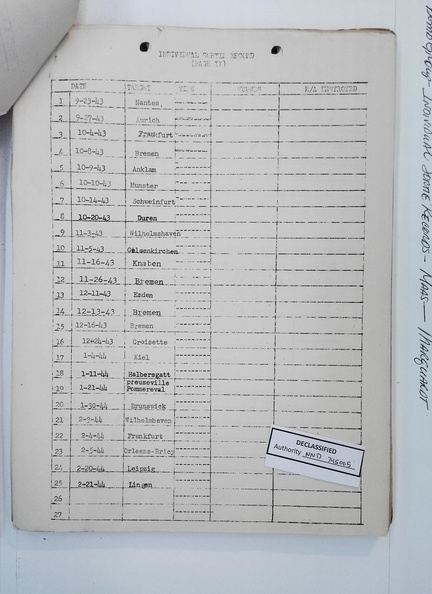 INDIVIDUAL SORTIE RECORD
(PAGE II)
DATE TARGET
1 9-23-43 Nantes,
2 9-27-43 Aurich
3 10-4-43 Frankfurt
4 10-8-43 Bremen
5 10-9-43 Anklam
6 10-10-43 Munster
7 10-14-43 Schweinfurt
8 10-20-43 Duren
9 11-3-43 Wilhelmshaven
10 11-5-43 Gelsenkirchen
11 11-16-43 Knaben
12 11-26-43 Bremen
13 12-11-43 Emden
14 12-13-43 Bremen
15 12-16-43 Bremen
16 12-24-43 Croisette
17 1-4-44 Kiel
18 1-11-44 Halbersgatt
19 1-21-44 preuseville
Pommereval
20 1-30-44 Brunswick
21 2-3-44 Wilhelmshaven
22 2-4-44 Frankfurt
23 2-5-44 Orleans-Bricy
24 2-20-44 Leipzig
25 2-21-44 Lingen
26
27
DECLASSIFIED
Authority NND 745005
INDIVIDUAL SORTIE RECORDS - MAAS - MARQUARDT